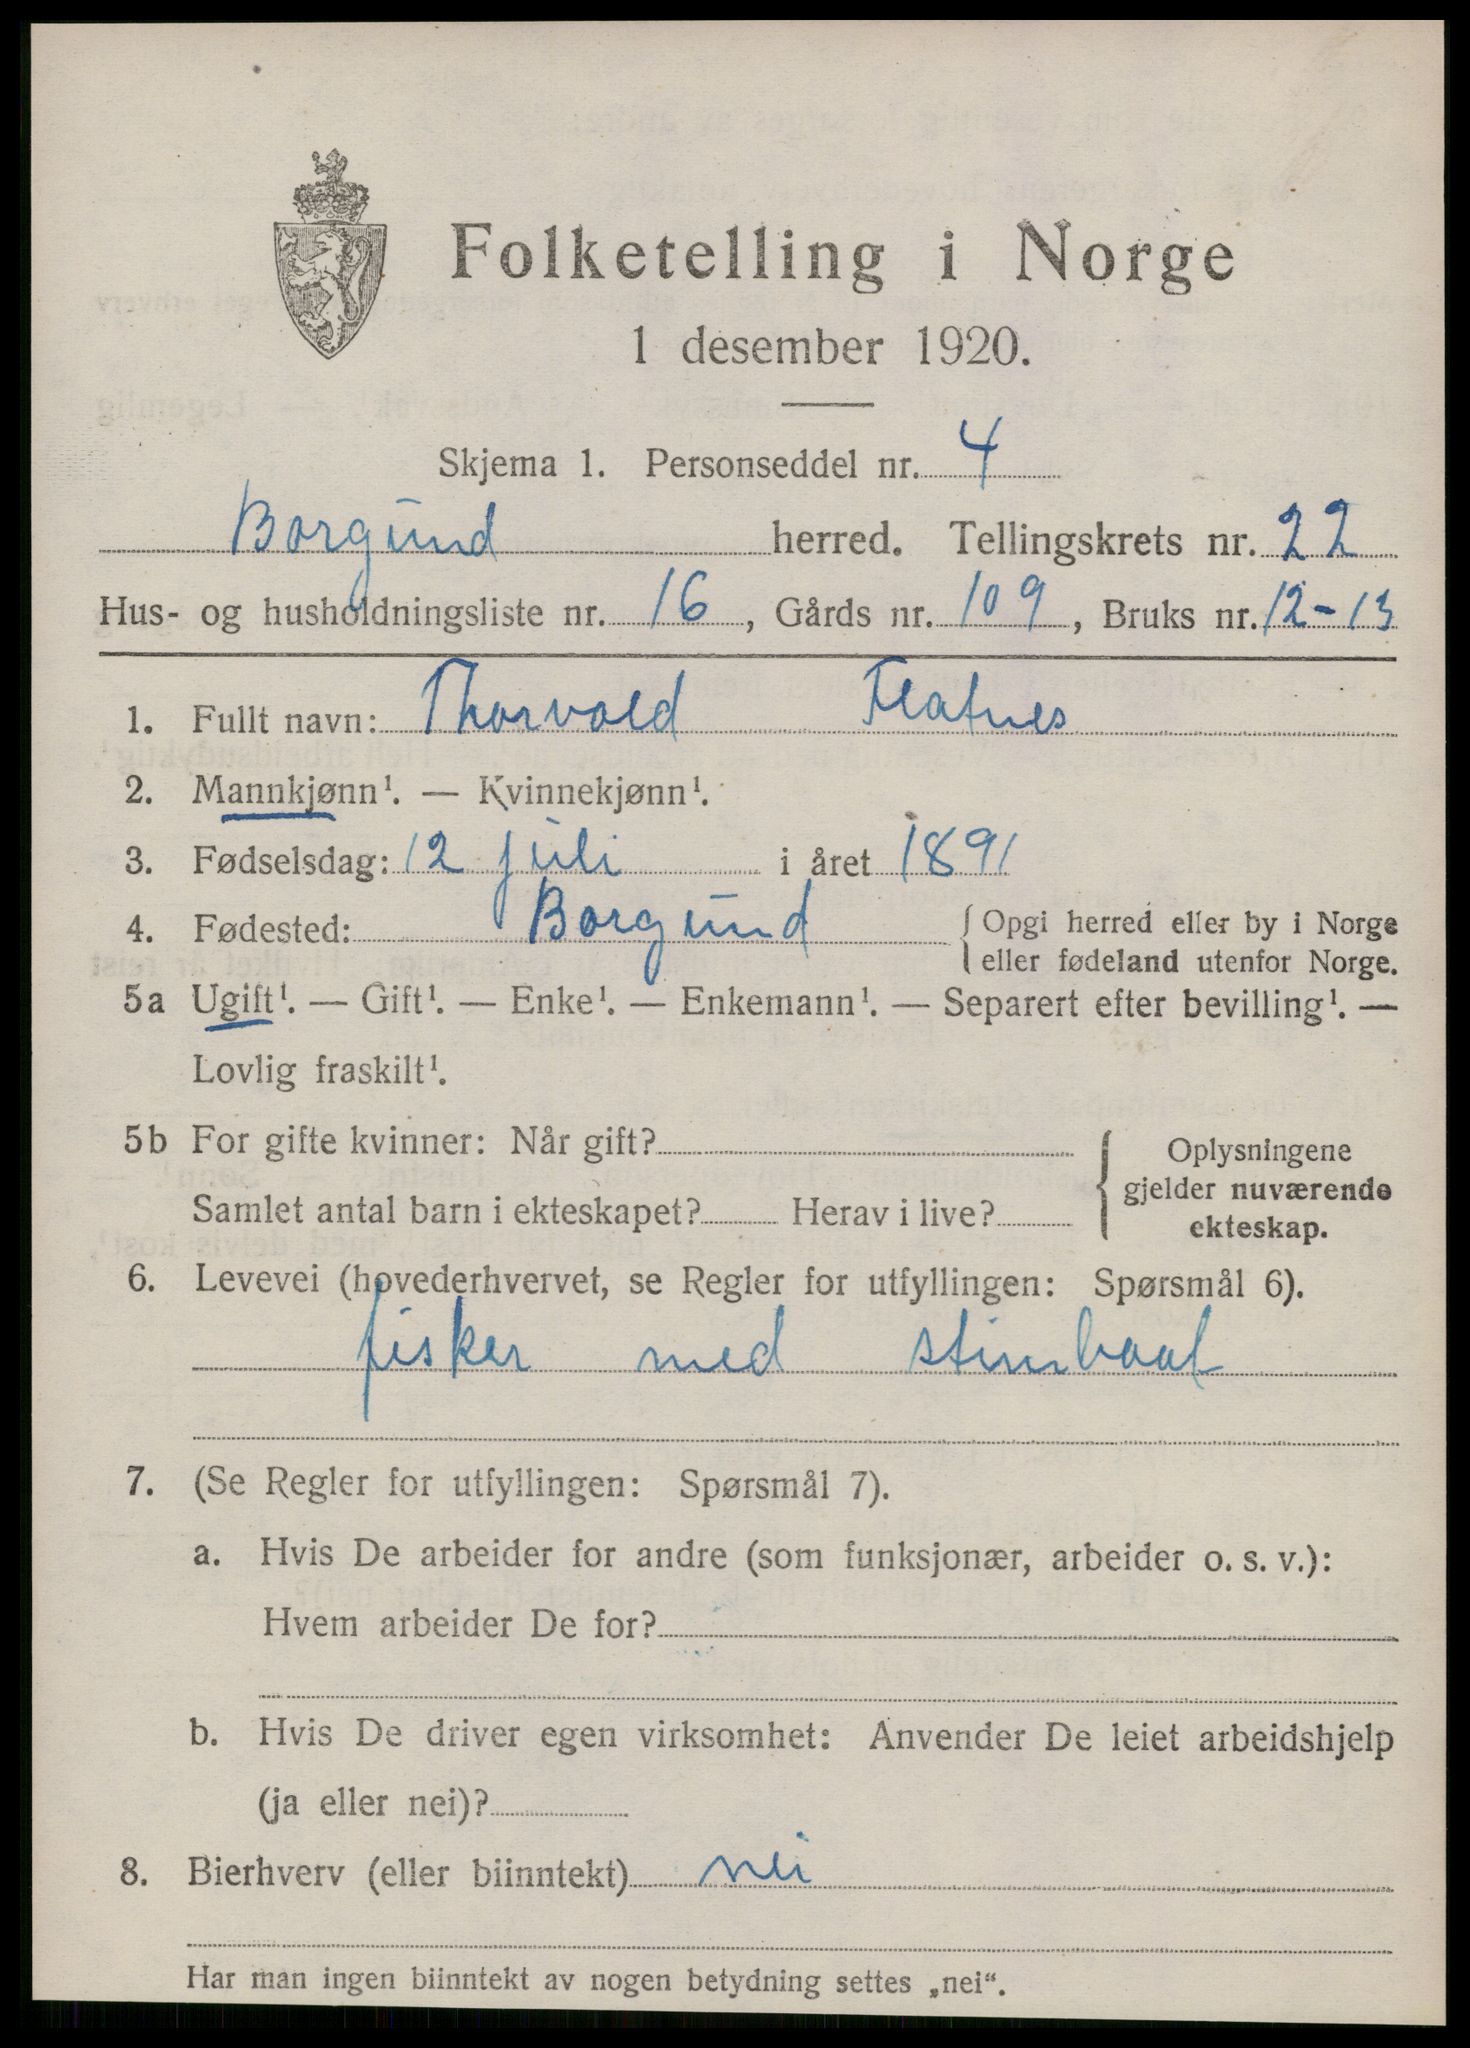 Folketelling i Norge
1 desember 1920.
Skjema 1. Personseddel nr. 4
Borgund herred. Tellingskrets nr. 22
Hus- og husholdningsliste nr. 16, Gårds nr. 109, Bruks nr. 12-13
1. Fullt navn: Thorvald Flatnes
2. Mannkjønn¹. — Kvinnekjønn¹.
3. Fødselsdag: 12 juli i året 1891
4. Fødested: Borgund { Opgi herred eller by i Norge
eller fødeland utenfor Norge.
5a Ugift¹. — Gift¹. — Enke¹. — Enkemann¹. — Separert efter bevilling¹. —
Lovlig fraskilt¹.
5b For gifte kvinner: Når gift?
Samlet antal barn i ekteskapet? Herav i live?
{ Oplysningene
gjelder nuværende
ekteskap.
6. Levevei (hovederhvervet, se Regler for utfyllingen: Spørsmål 6).
fisker med stimbaat
7. (Se Regler for utfyllingen: Spørsmål 7).
a. Hvis De arbeider for andre (som funksjonær, arbeider o. s. v.):
Hvem arbeider De for?
b. Hvis De driver egen virksomhet: Anvender De leiet arbeidshjelp
(ja eller nei)?
8. Bierhverv (eller biinntekt) nei
Har man ingen biinntekt av nogen betydning settes „nei“.